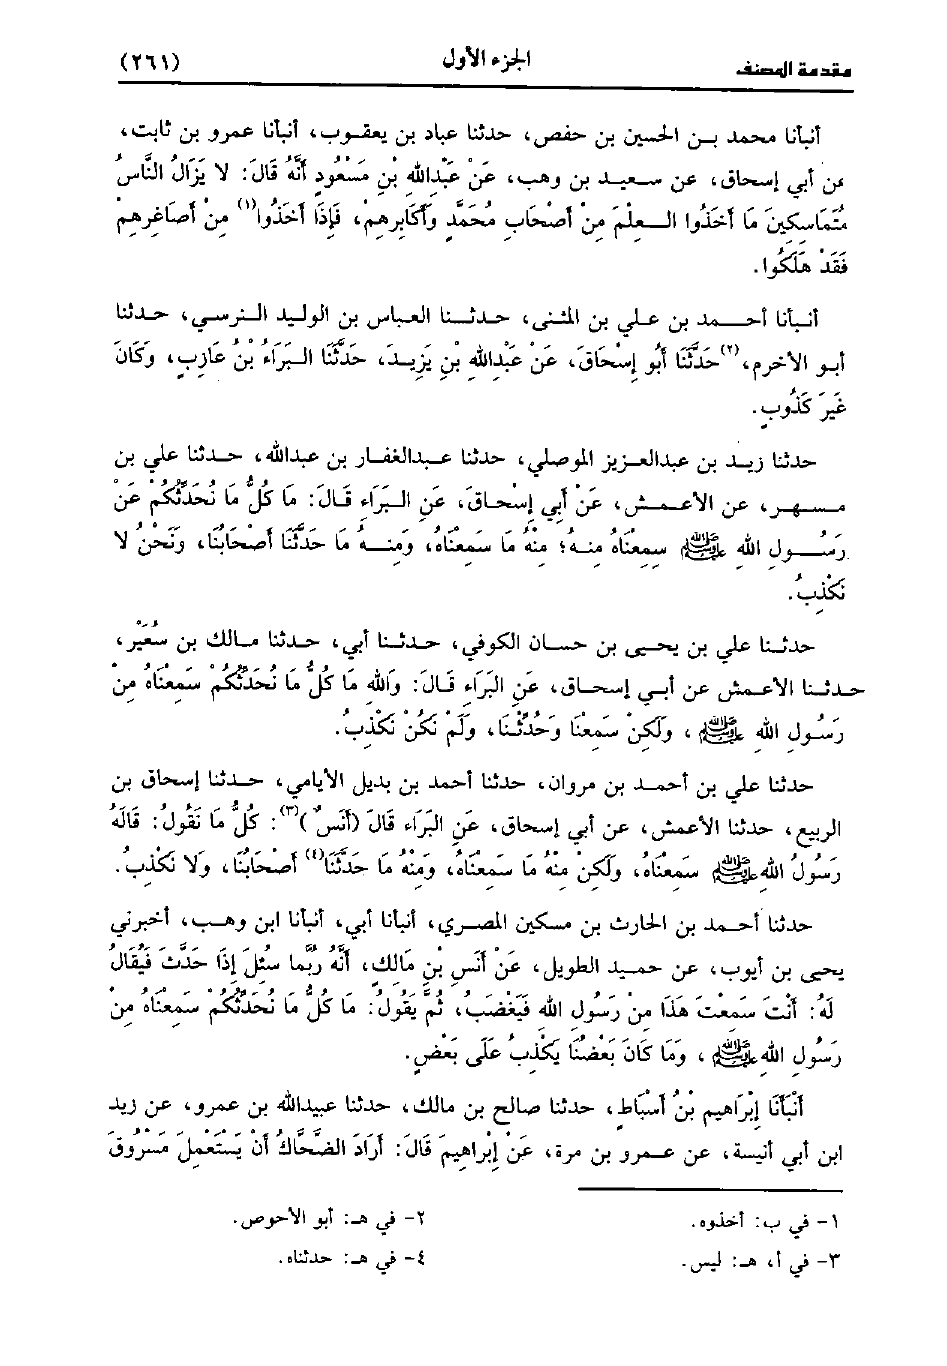 مقدمة المصنف
الجزء الأول
(٢٦١)
أنبأنا محمد بـن الحسين بن حفص، حدثنا عباد بن يعقوب، أنبأنا عمرو بن ثابت،
عن أبي إسحاق، عن سعيد بن وهب، عَنْ عَبْدِاللهِ بْنِ مَسْعُودٍ أَنَّهُ قَالَ: لَا يَزَالُ النَّاسُ
مُتَمَاسِكِينَ مَا أَخَذُوا الْعِلْمَ مِنْ أَصْحَابِ مُحَمَّدٍ وَأَكَابِرِهِمْ، فَإِذَا أَخَذُوا(١) مِنْ أَصَاغِرِهِمْ
فَقَدْ هَلَكُوا.
أنبأنا أحمد بن علي بن المثنى، حدثنا العباس بن الوليد النرسي، حدثنا
أبو الأخرم،(٢) حَدَّثَنَا أَبُو إِسْحَاقَ، عَنْ عَبْدِاللهِ بْنِ يَزِيدَ، حَدَّثَنَا الْبَرَاءُ بْنُ عَازِبٍ، وَكَانَ
غَيْرَ كَذُوبٍ.
حدثنا زيد بن عبدالعزيز الموصلي، حدثنا عبدالغفار بن عبدالله، حدثنا علي بن
مسهر، عن الأعمش، عَنْ أَبِي إِسْحَاقَ، عَنِ الْبَرَاءِ قَالَ: مَا كُلُّ مَا نُحَدِّثُكُمْ عَنْ
رَسُولِ اللهِ ﷺ سَمِعْنَاهُ مِنْهُ؛ مِنْهُ مَا سَمِعْنَاهُ، وَمِنْهُ مَا حَدَّثَنَا أَصْحَابُنَا، وَنَحْنُ لَا
نَكْذِبُ.
حدثنا علي بن يحيى بن حسان الكوفي، حدثنا أبي، حدثنا مالك بن سُعَيْرٍ،
حدثنا الأعمش عن أبي إسحاق، عَنِ الْبَرَاءِ قَالَ: وَاللهِ مَا كُلُّ مَا نُحَدِّثُكُمْ سَمِعْنَاهُ مِنْ
رَسُولِ اللهِ ﷺ، وَلَكِنْ سَمِعْنَا وَحُدِّثْنَا، وَلَمْ نَكُنْ نَكْذِبُ.
حدثنا علي بن أحمد بن مروان، حدثنا أحمد بن بديل الأيامي، حدثنا إسحاق بن
الربيع، حدثنا الأعمش، عن أبي إسحاق، عَنِ الْبَرَاءِ قَالَ (أَنَسٌ)(٣): كُلُّ مَا نَقُولُ: قَالَهُ
رَسُولُ اللهِ ﷺ سَمِعْنَاهُ، وَلَكِنْ مِنْهُ مَا سَمِعْنَاهُ، وَمِنْهُ مَا حَدَّثَنَا(٤) أَصْحَابُنَا، وَلَا نَكْذِبُ.
حدثنا أحمد بن الحارث بن مسكين المصري، أنبأنا أبي، أنبأنا ابن وهب، أخبرني
يحيى بن أيوب، عن حميد الطويل، عَنْ أَنَسِ بْنِ مَالِكٍ، أَنَّهُ رُبَّمَا سُئِلَ إِذَا حَدَّثَ فَيُقَالُ
لَهُ: أَنْتَ سَمِعْتَ هَذَا مِنْ رَسُولِ اللهِ فَيَغْضَبُ، ثُمَّ يَقُولُ: مَا كُلُّ مَا نُحَدِّثُكُمْ سَمِعْنَاهُ مِنْ
رَسُولِ اللهِ ﷺ، وَمَا كَانَ بَعْضُنَا يَكْذِبُ عَلَى بَعْضٍ.
أَنْبَأَنَا إِبْرَاهِيمُ بْنُ أَسْبَاطٍ، حدثنا صالح بن مالك، حدثنا عبيدالله بن عمرو، عن زيد
ابن أبي أنيسة، عن عمرو بن مرة، عَنْ إِبْرَاهِيمَ قَالَ: أَرَادَ الضَّحَّاكُ أَنْ يَسْتَعْمِلَ مَسْرُوقَ
١- في ب: أخذوه.
٢- في هـ: أبو الأحوص.
٣- في أ، هـ: ليس.
٤- في هـ: حدثناه.